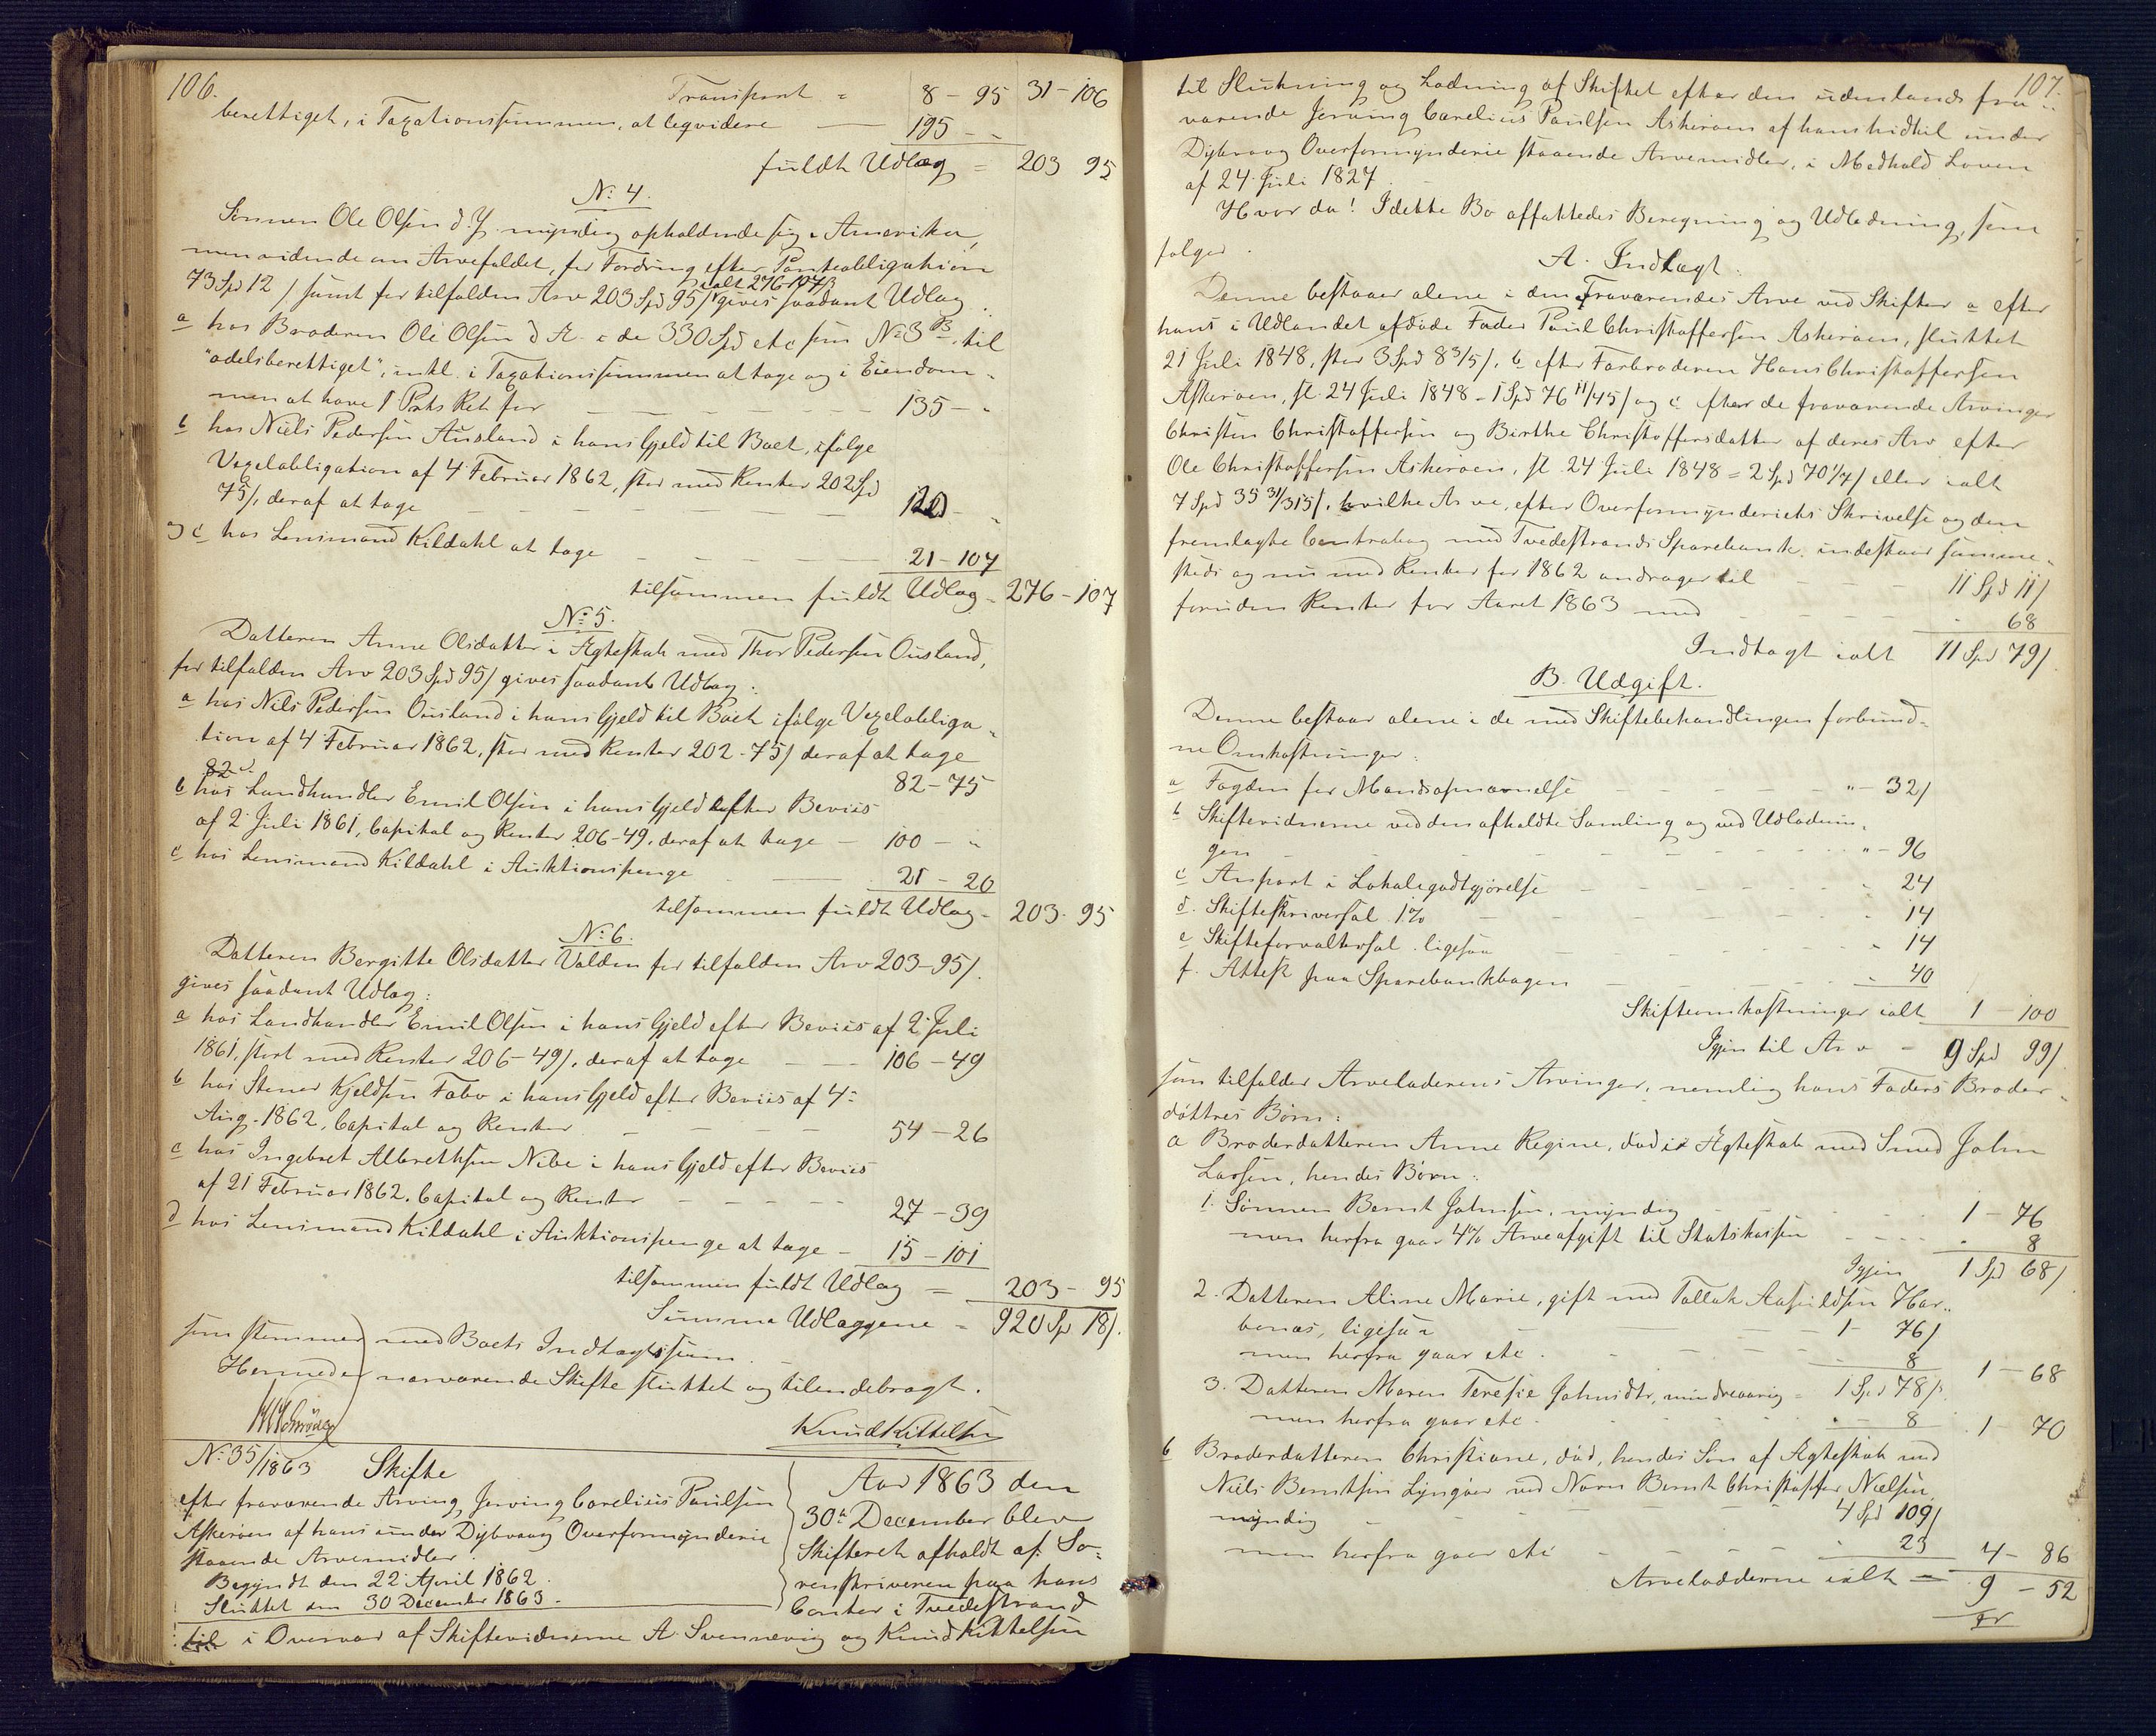 106.
Transport = 8 - 95 31 - 106
berettiget, i Taxationssummen, at leqvidere — 195 - -
fuldt Udlæg = 203 95
No. 4.
Sønnen Ole Olsen d.Y. myndig opholdende sig i Amerika,
men vidende om Arvefaldet, for Fordring efter Panteobligation
ialt 276-107 ß
73 Spd 12 ß samt for tilfalden Arv 203 Spd 95 ß gives saadant Udlæg
a hos Broderen Ole Olsen d Æ. i de 330 Spd etc som No 3 B. til
"odelsberettiget", intl. i Taxationssummen at tage og i Eiendom-
men at have 1 Prts Ret for — 135 - "
b hos Niels Pedersen Ausland i hans Gjeld til Boet, ifølge
Vexelobligation af 4 Februar 1862, stor med Renter 202 Spd
75 ß, deraf at tage — 120 - "
og c hos Lensmand Kildahl at tage — 21 - 107
tilsammen fuldt Udlæg - 276 - 107
No. 5.
Datteren Anne Olsdatter i Ægteskab med Thor Pedersen Ousland,
for tilfalden Arv 203 Spd 95 ß gives saadant Udlæg:
a hos Nils Pedersen Ousland i hans Gjeld til Boet ifølge Vexelobliga-
tion af 4 Februar 1862, stor med Renter 202-75 ß deraf at tage
82 82 - 75
b hos Landhandler Emil Olsen i hans Gjeld efter Beviis
af 2 Juli 1861, Capital og Renter 206-49, deraf at tage — 100 - "
c hos Lensmand Kildahl i Auktionspenge — 21 - 20
tilsammen fuldt Udlæg - 203 - 95
No. 6.
Datteren Bergitte Olsdatter Valden for tilfalden Arv 203-95 ß.
gives saadant Udlæg:
a hos Landhandler Emil Olsen i hans Gjeld efter Beviis af 2 Juli
1861, stort med Renter 206-49 ß, deraf at tage — 106 - 49
b hos Stener Kjeldsen Fabo i hans Gjeld efter Beviis af 4:
Aug. 1862, Capital og Renter — 54 - 26
c hos Ingebret Albrethsen Nibe i hans Gjeld efter Beviis
af 21 Februar 1862. Capital og Renter — 27 - 39
d hos Lensmand Kildahl i Auktionspenge at tage — 15 - 101
tilsammen fuldt Udlæg = 203 - 95
Summa Udlæggene = 920 Sp 18 ß.
som stemmer med Boets Indtægtssum. -
Hermed er nærværende Skifte sluttet og tilendebragt.
Knud Kittelsen
No. 35/1863 Skifte
efter fraværende Arving, Jørving Corelius Paulsen
Askerøen af hans under Dybvaag Overformynderie
staaende Arvemidler.
Begyndt den 22 April 1862.
Sluttet den 30 December 1863.
Aar 1863 den
30te December blev
Skifteret afholdt af So-
renskriveren paa hans
Contor i Tvedestrand
til i Overvær af Skiftevidnerne A. Svennevig og Knud Kittelsen
107.
til Slutning og Lodning af Skiftet efter den udenlands fra-
værende Jørving Corelius Paulsen Askerøen af hans hidtil under
Dybvaag Overformynderie staaende Arvemidler, i Medhold Loven
af 24 Juli 1827.
Hvor da! I dette Bo affattedes Beregning og Udlodning, som
følger.
A. Indtægt.
Denne bestaaer alene i den Fraværendes Arve ved Skifter a efter
hans i Udlandet afdøde Fader Paul Christoffersen Askerøen, sluttet
21 Juli 1848, stor 3 Spd 8 3/5 ß, b efter Farbroderen Hans Christoffersen
Askerøen, sl. 24 Juli 1848 - 1 Spd 76 11/45 ß og c efter de fraværende Arvinger
Christen Christoffersen og Birthe Christoffersdatter af deres Arv efter
Ole Christoffersen Askerøen, sl. 24 Juli 1848 = 2 Spd 70 1/7 ß eller ialt
7 Spd 35 31/315 ß, hvilke Arve, efter Overformynderiets Skrivelse og den
fremlagte Contrabog med Tvedestrands Sparebank indestaar samme-
steds og nu med Renter for 1862 andrager til — 11 Spd 11 ß
foruden Renter for Aaret 1863 med — 68
Indtægt ialt 11 Spd 79 ß.
B. Udgift.
Denne bestaar alene i de med Skiftebehandlingen forbund-
ne Omkostninger:
a Fogden for Mandsopnævnelse — " - 32 ß
b Skiftevidnerne ved den afholdte Samling og ved Udlodnin-
gen — " - 96
c Anpart i Lokalegodtgjørelse — 24
d. Skifteskriversal. 1% — 14
e Skifteforvaltersal. ligesaa — 14
f. Attest paa Sparebankbogen — 40
Skifteomkostninger ialt 1 - 100
Igjen til Arv - 9 Spd 99 ß.
som tilfalder Arveladerens Arvinger, nemlig hans Faders Broder-
døttres Børn:
a Broderdatteren Anne Regine, død i Ægteskab med Smed John
Larsen, hendes Børn:
1. Sønnen Bernt Johnsen, myndig — 1 - 76
men herfra gaar 4% Arveafgift til Statskassen — 8
Igjen 1 Spd 68 ß.
2. Datteren Aline Marie, gift med Tallak Aasuldsen Hor-
benæs, ligesaa — 1 - 76 ß
men herfra gaar etc. — 8 1 - 68
3. Datteren Maren Teresie Johnsdtr, mindreaarig = 1 Spd 78 ß.
men herfra gaar etc. — 8 1 - 70
b Broderdatteren Christiane, død, hendes Søn af Ægteskab med
Niels Berntsen Lyngøer ved Navn Bernt Christoffer Nielsen,
myndig — 4 Spd 109 ß
men herfra gaar etc — 23 4 - 86
Arvelodderne ialt = 9 - 52